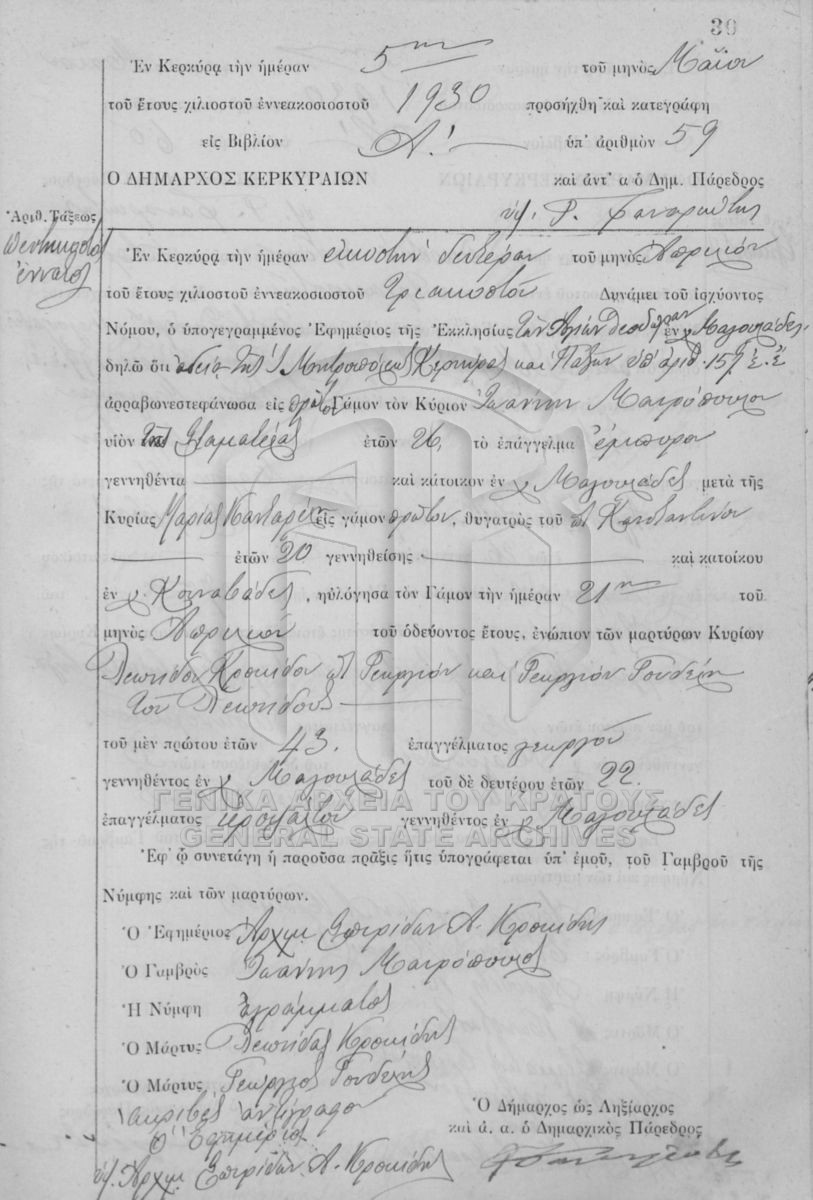 30
Ἐν Κερκύρᾳ τὴν ἡμέραν 5ην τοῦ μηνὸς Μαΐου
τοῦ ἔτους χιλιοστοῦ ἐννεακοσιοστοῦ 1930 προσήχθη καὶ κατεγράφη
εἰς Βιβλίον Α! ὑπ' ἀριθμὸν 59
Ο ΔΗΜΑΡΧΟΣ ΚΕΡΚΥΡΑΙΩΝ καὶ ἀντ' α ὁ Δημ. Πάρεδρος
Ἀριθ. Τάξεως
πεντηκοστὸς
ἔννατος
Ἐν Κερκύρᾳ τὴν ἡμέραν εἰκοστὴν δευτέραν τοῦ μηνὸς Ἀπριλίου
τοῦ ἔτους χιλιοστοῦ ἐννεακοσιοστοῦ τριακοστοῦ Δυνάμει τοῦ ἰσχύοντος
Νόμου, ὁ ὑπογεγραμμένος Ἐφημέριος τῆς Ἐκκλησίας τῶν Ἁγίων Θεοδώρων ἐν χ. Μαγουλάδες
δηλῶ ὅτι ἀδείᾳ τῆς Ἱ. Μητροπόλεως Κερκύρας καὶ Παξῶν ὑπ' ἀριθ. 157 ἐ. ἔ.
ἀρραβωνεστεφάνωσα εἰς πρῶτον Γάμον τὸν Κύριον Ἰωάννην Μαυρόπουλον
υἱὸν τῆς Σταματέλας ἐτῶν 26, τὸ ἐπάγγελμα ἔμπορον
γεννηθέντα καὶ κάτοικον ἐν χ. Μαγουλάδες μετὰ τῆς
Κυρίας Μαρίας εἰς γάμον πρῶτον, θυγατρὸς τοῦ Κωνσταντίνου
ἐτῶν 20 γεννηθείσης καὶ κατοίκου
ἐν χ. Κουναβάδες, ηὐλόγησα τὸν Γάμον τὴν ἡμέραν 21ην τοῦ
μηνὸς Ἀπριλίου τοῦ ὁδεύοντος ἔτους, ἐνώπιον τῶν μαρτύρων Κυρίων
Λεωνίδου Κροκίδου τοῦ Γεωργίου καὶ Γεωργίου Γουδέλη
τοῦ Λεωνίδου
τοῦ μὲν πρώτου ἐτῶν 43. ἐπαγγέλματος γεωργοῦ
γεννηθέντος ἐν χ. Μαγουλάδες τοῦ δὲ δευτέρου ἐτῶν 22.
ΓΕΝΙΚΑ ΑΡΧΕΙΑ ΤΟΥ ΚΡΑΤΟΥΣ
ἐπαγγέλματος γεννηθέντος ἐν χ. Μαγουλάδες
GENERAL STATE ARCHIVES
Ἐφ' ᾧ συνετάγη ἡ παροῦσα πρᾶξις ἥτις ὑπογράφεται ὑπ' ἐμοῦ, τοῦ Γαμβροῦ τῆς
Νύμφης καὶ τῶν μαρτύρων.
Ὁ Ἐφημέριος Ἀρχιμ. Σπυρίδων Α. Κροκίδης
Ὁ Γαμβρὸς Ἰωάννης Μαυρόπουλος
Ἡ Νύμφη ἀγράμματος
Ὁ Μάρτυς Λεωνίδας Κροκίδης
Ὁ Μάρτυς Γεώργιος Γουδέλης
ἀκριβὲς ἀντίγραφον
Ὁ Ἐφημέριος
ὑπ. Ἀρχιμ. Σπυρίδων Α. Κροκίδης
Ὁ Δήμαρχος ὡς Ληξίαρχος
καὶ ἀ. ἀ. ὁ Δημαρχικὸς Πάρεδρος